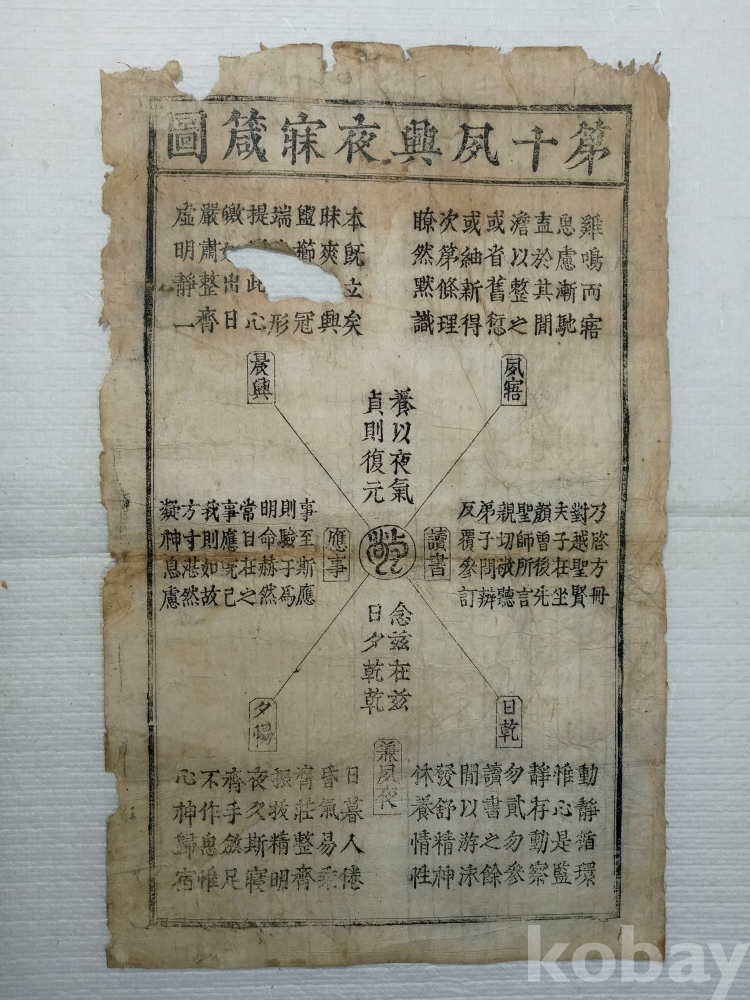 第十夙興夜寐箴圖
雞鳴而寤
思慮漸馳
盍於其間
澹以整之
或省舊愆
或紬新得
次第條理
瞭然默識
夙寤
本旣立矣
昧爽興
盥櫛冠
端形
提此心
皦出日
嚴肅整齊
虛明靜一
晨興
養以夜氣
貞則復元
乃啓方冊
對越聖賢
夫子在坐
顔曾後先
聖師所言
親切敬聽
弟子問辨
反覆參訂
讀書
敬
應事
事至斯應
則驗于爲
明命赫然
常目在之
事應旣已
我則如故
方寸湛然
凝神息慮
念茲在茲
日夕乾乾
日乾
動靜循環
惟心是監
靜存動察
勿貳勿參
讀書之餘
間以游泳
發舒精神
休養情性
兼夙夜
夕惕
日暮人倦
昏氣易乘
齊莊整齊
振拔精明
夜久斯寢
齊手斂足
不作思惟
心神歸宿
kobay